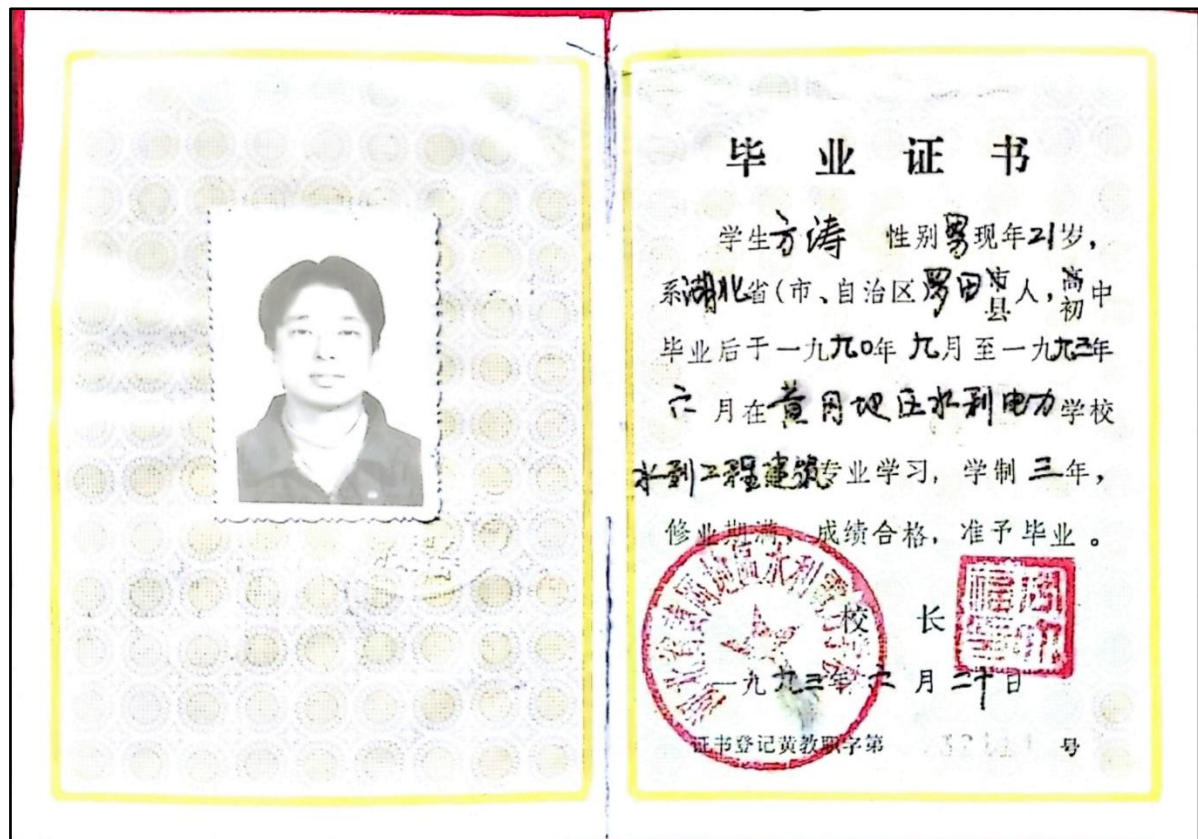 毕业证书
学生方涛 性别男现年21岁,
系湖北省(市、自治区)罗田市县人,高初中
毕业后于一九九〇年九月至一九九三年
六月在黄冈地区水利电力学校
水利工程建筑专业学习,学制三年,
修业期满,成绩合格,准予毕业。
湖北省黄冈地區水利電力学校
校长
一九九三年六月二十日
证书登记黄教职字第 号